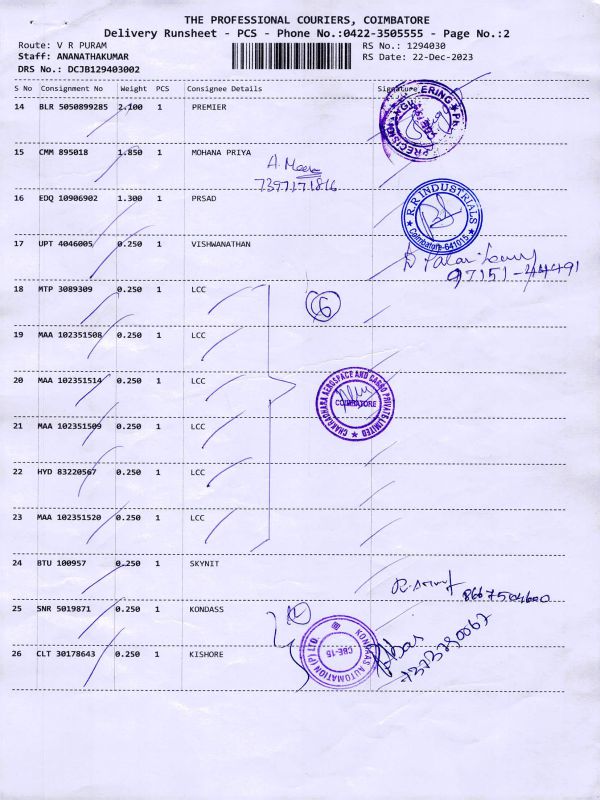 THE PROFESSIONAL COURIERS, COIMBATORE
Delivery Runsheet - PCS - Phone No.:0422-3505555 - Page No.:2
Route: V R PURAM RS No.: 1294030
Staff: ANANATHAKUMAR RS Date: 22-Dec-2023
DRS No.: DCJB129403002
S No Consignment No Weight PCS Consignee Details Signature
14 BLR 5050899285 2.100 1 PREMIER
15 CMM 895018 1.850 1 MOHANA PRIYA
A. Meera
7397171816
16 EDQ 10906902 1.300 1 PRSAD
R.R INDUSTRIALS
Coimbatore-641015
17 UPT 4046005 0.250 1 VISHWANATHAN
97151-44491
18 MTP 3089309 0.250 1 LCC
6
19 MAA 102351508 0.250 1 LCC
20 MAA 102351514 0.250 1 LCC
CHAKRADHARA AEROSPACE AND CARGO PRIVATE LIMITED
COIMBATORE
21 MAA 102351509 0.250 1 LCC
22 HYD 83220567 0.250 1 LCC
23 MAA 102351520 0.250 1 LCC
24 BTU 100957 0.250 1 SKYNIT
25 SNR 5019871 0.250 1 KONDASS
KONDAAS AUTOMATION (P) LTD.
CBE-15
26 CLT 30178643 0.250 1 KISHORE